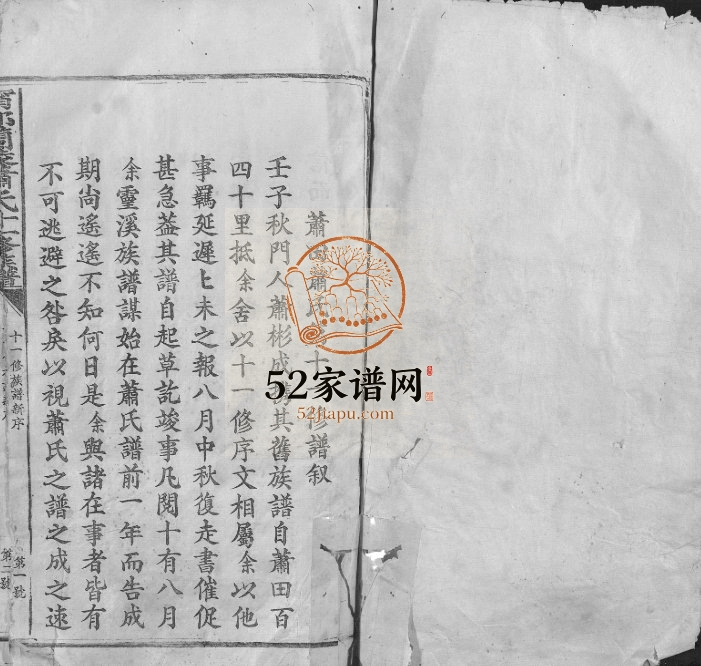 蕭田蕭氏十一修譜叙
壬子秋門人蕭彬成其舊族譜自蕭田百
四十里抵余舍以十一修序文相屬余以他
事羈延遲乚未之報八月中秋復走書催促
甚急葢其譜自起草訖竣事凡閱十有八月
余靈溪族譜謀始在蕭氏譜前一年而告成
期尚遥遥不知何日是余與諸在事者皆有
不可逃避之咎戾以視蕭氏之譜之成之速
蕭氏十一修族譜
十一修族譜新序
第一號
第二號
52家谱网
52jiapu.com